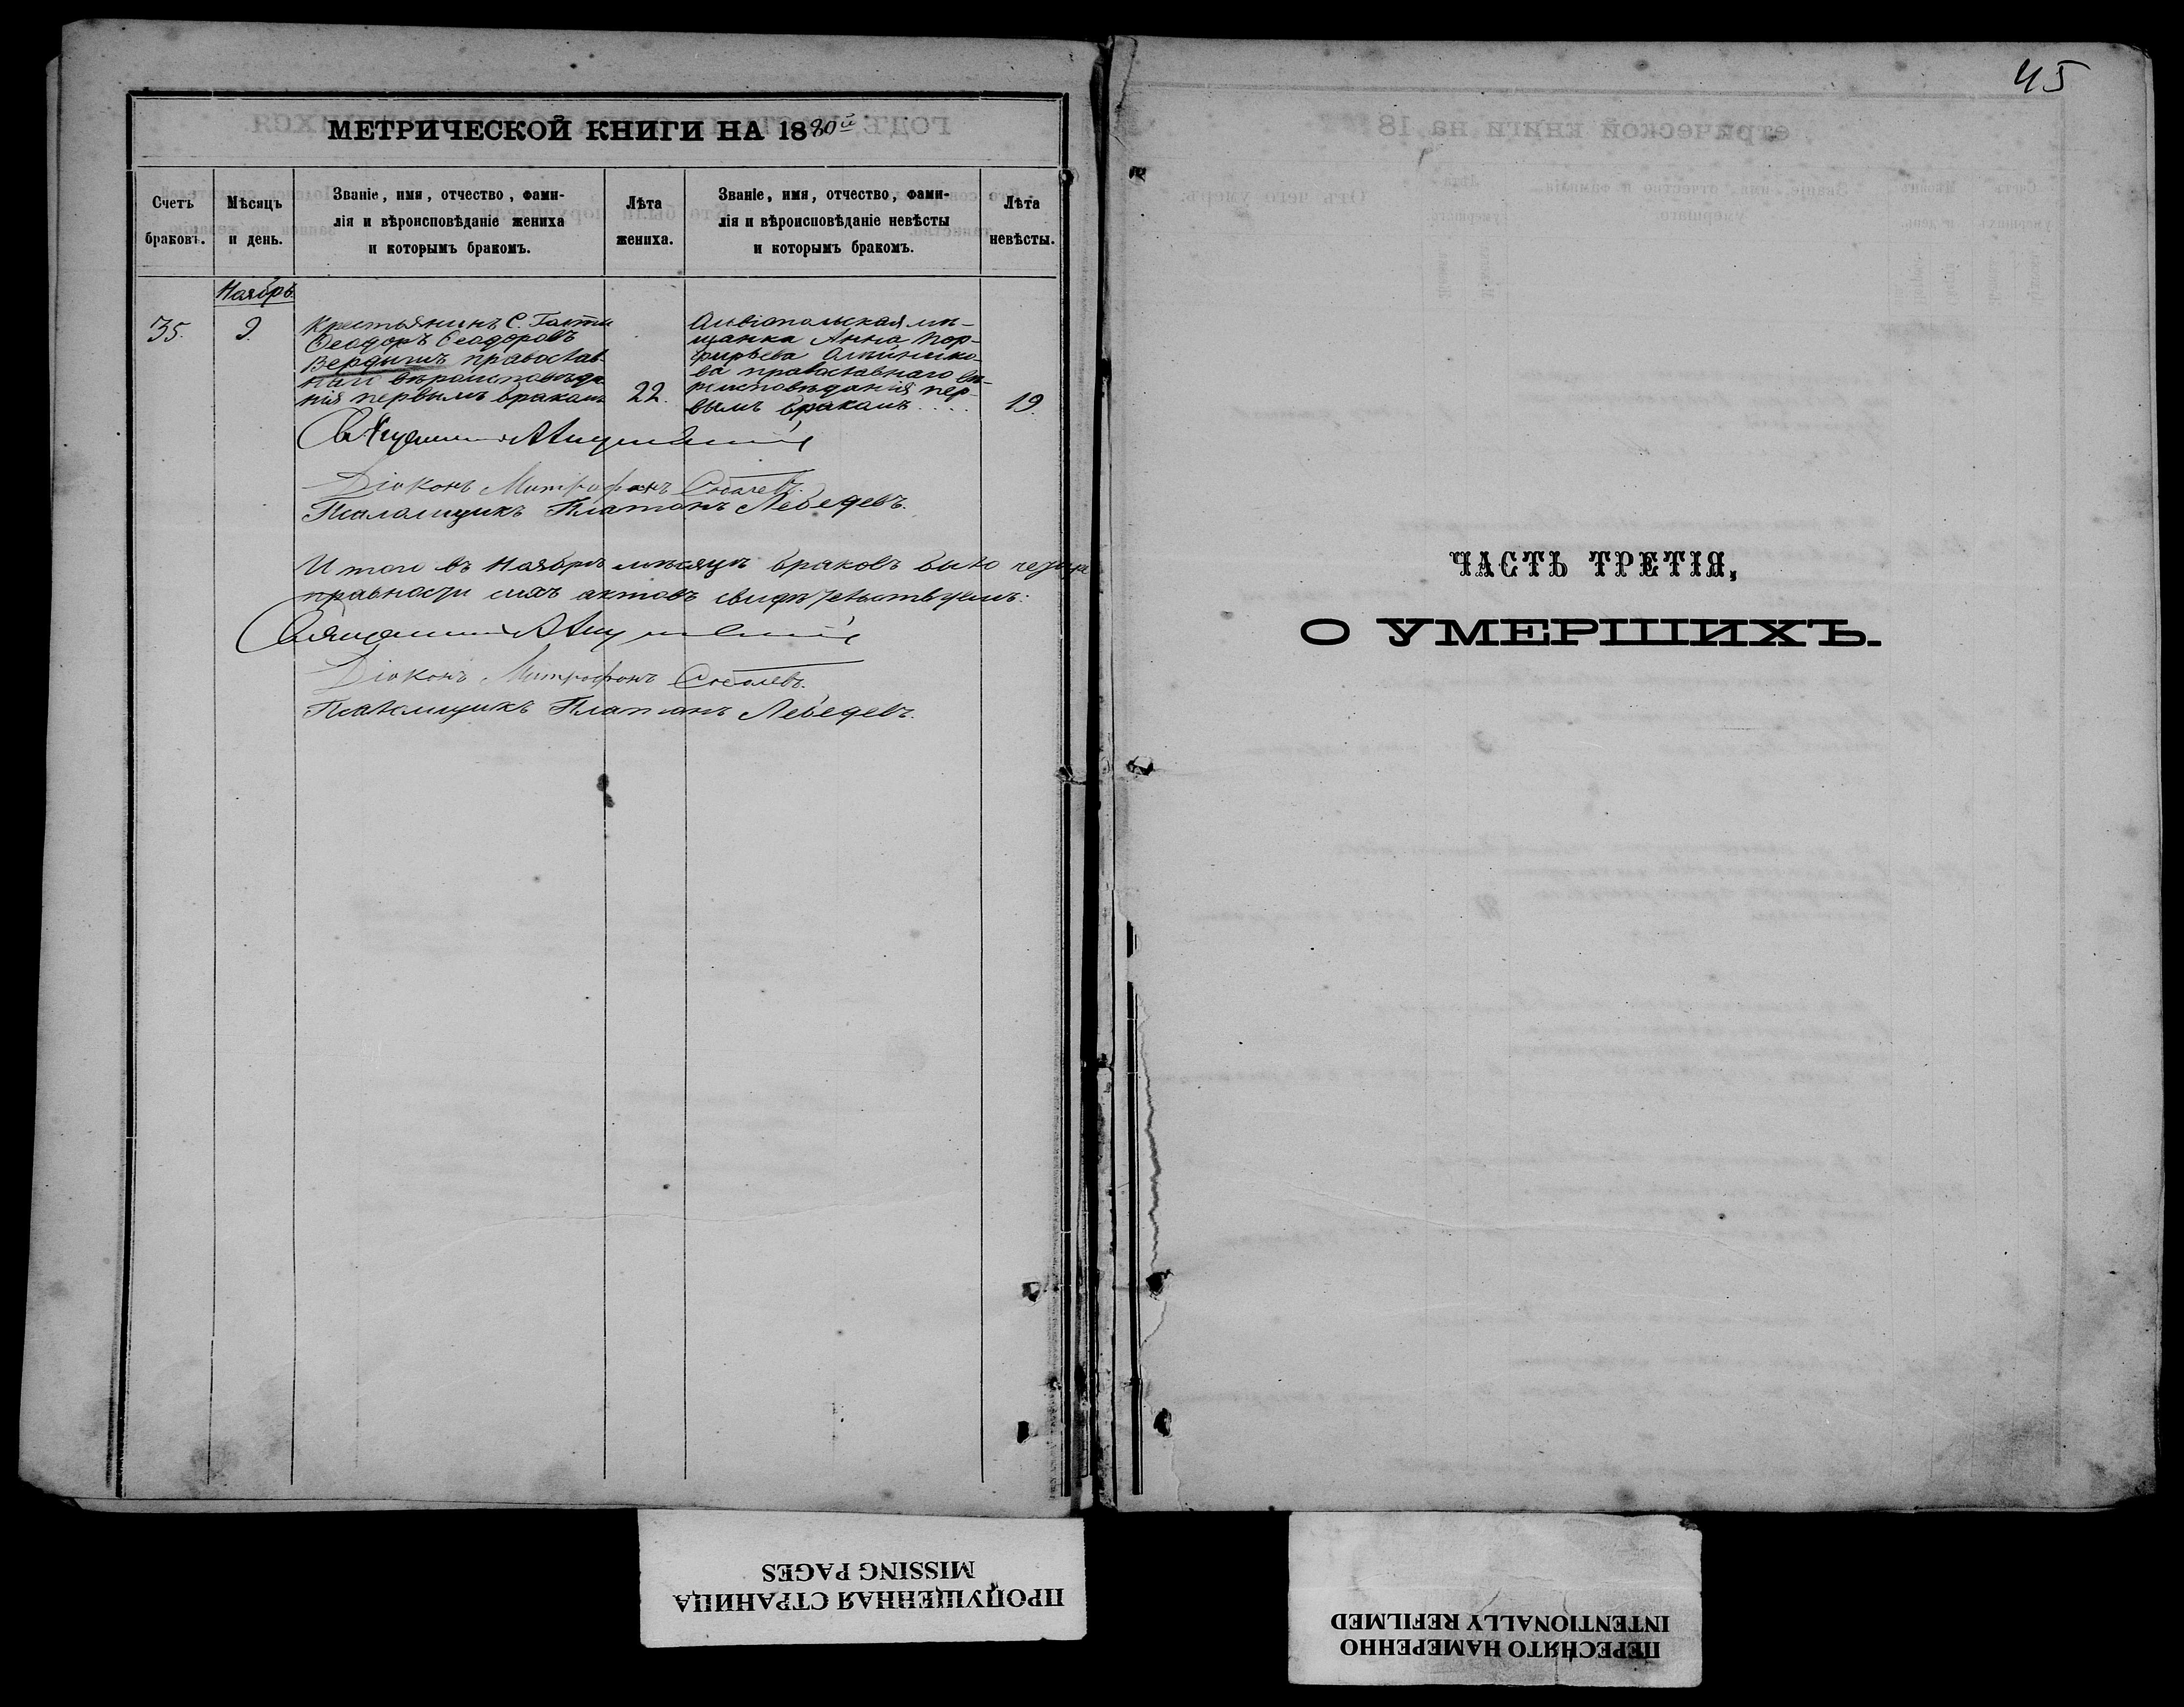 45
МЕТРИЧЕСКОЙ КНИГИ НА 1880й
Счетъ браковъ.
Мѣсяцъ и день.
Званіе, имя, отчество, фами-
лія и вѣроисповѣданіе жениха
и которымъ бракомъ.
Лѣта жениха.
Званіе, имя, отчество, фами-
лія и вѣроисповѣданіе невѣсты
и которымъ бракомъ.
Лѣта невѣсты.
Ноябрь
35.
9.
Крестьянинъ С.
Ѳеодоръ Ѳеодоровъ
православ-
наго вѣроисповѣда
нія первымъ бракомъ
22.
Ольвіопольская мѣ-
щанка Анна Пор-
фирьева Олейнико-
ва православнаго вѣ-
роисповѣданія пер-
вымъ бракомъ . . . .
19.
Діаконъ Митрофанъ Соболевъ.
Псаломщикъ Платонъ Лебедевъ.
Итого въ Ноябрѣ мѣсяцѣ браковъ было
актовъ свидѣтельствуемъ:
Діаконъ Митрофанъ Соболевъ.
Псаломщикъ Платонъ Лебедевъ.
ЧАСТЬ ТРЕТІЯ,
О УМЕРШИХЪ.
ПРОПУЩЕННАЯ СТРАНИЦА
MISSING PAGES
ПЕРЕСНЯТО НАМЕРЕННО
INTENTIONALLY REFILMED